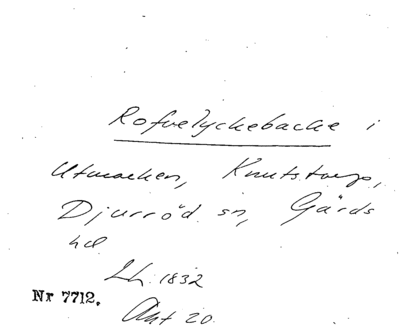 Rofvelyckebacke i
Utmarken, Knutstorp,
Djurröd sn, Gärds
hd
Lh. 1832
Nr 7712.
Akt 20.